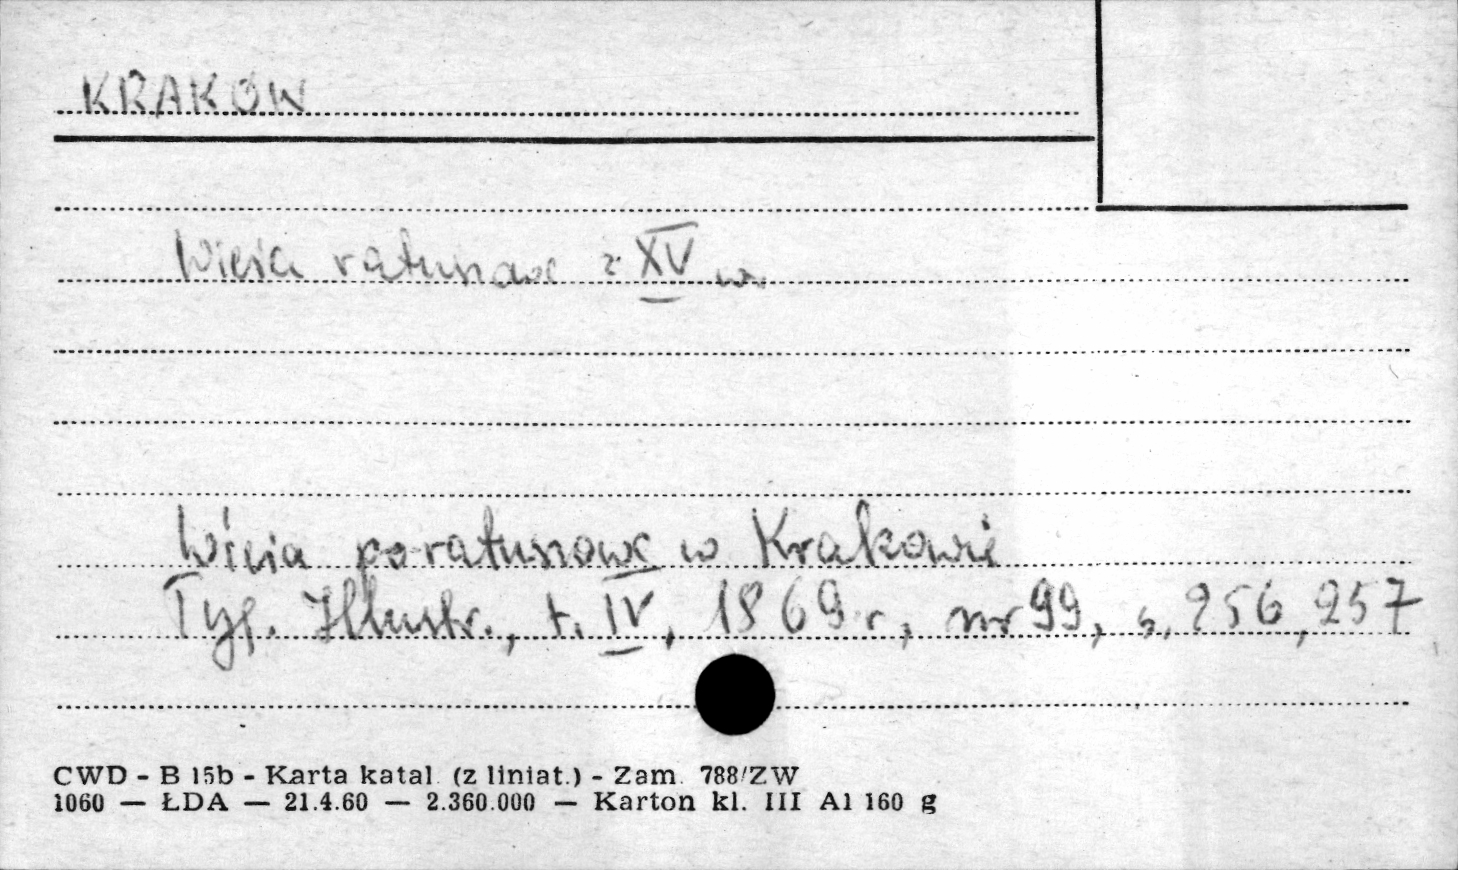 KRAKÓW
Wieża ratuszowa z XV w.
Wieża poratuszowa w Krakowie
Tyg. Illustr., t. IV, 1869 r., nr 99, s. 256, 257
CWD - B 15b - Karta katal. (z liniat.) - Zam. 788/ZW
1060 — ŁDA — 21.4.60 — 2.360.000 — Karton kl. III A1 160 g